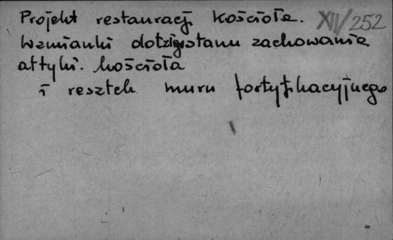 Projekt restauracji Kościoła. XIV/252
Wzmianki dot. stanu zachowania
attyki. kościoła
i resztek muru fortyfikacyjnego